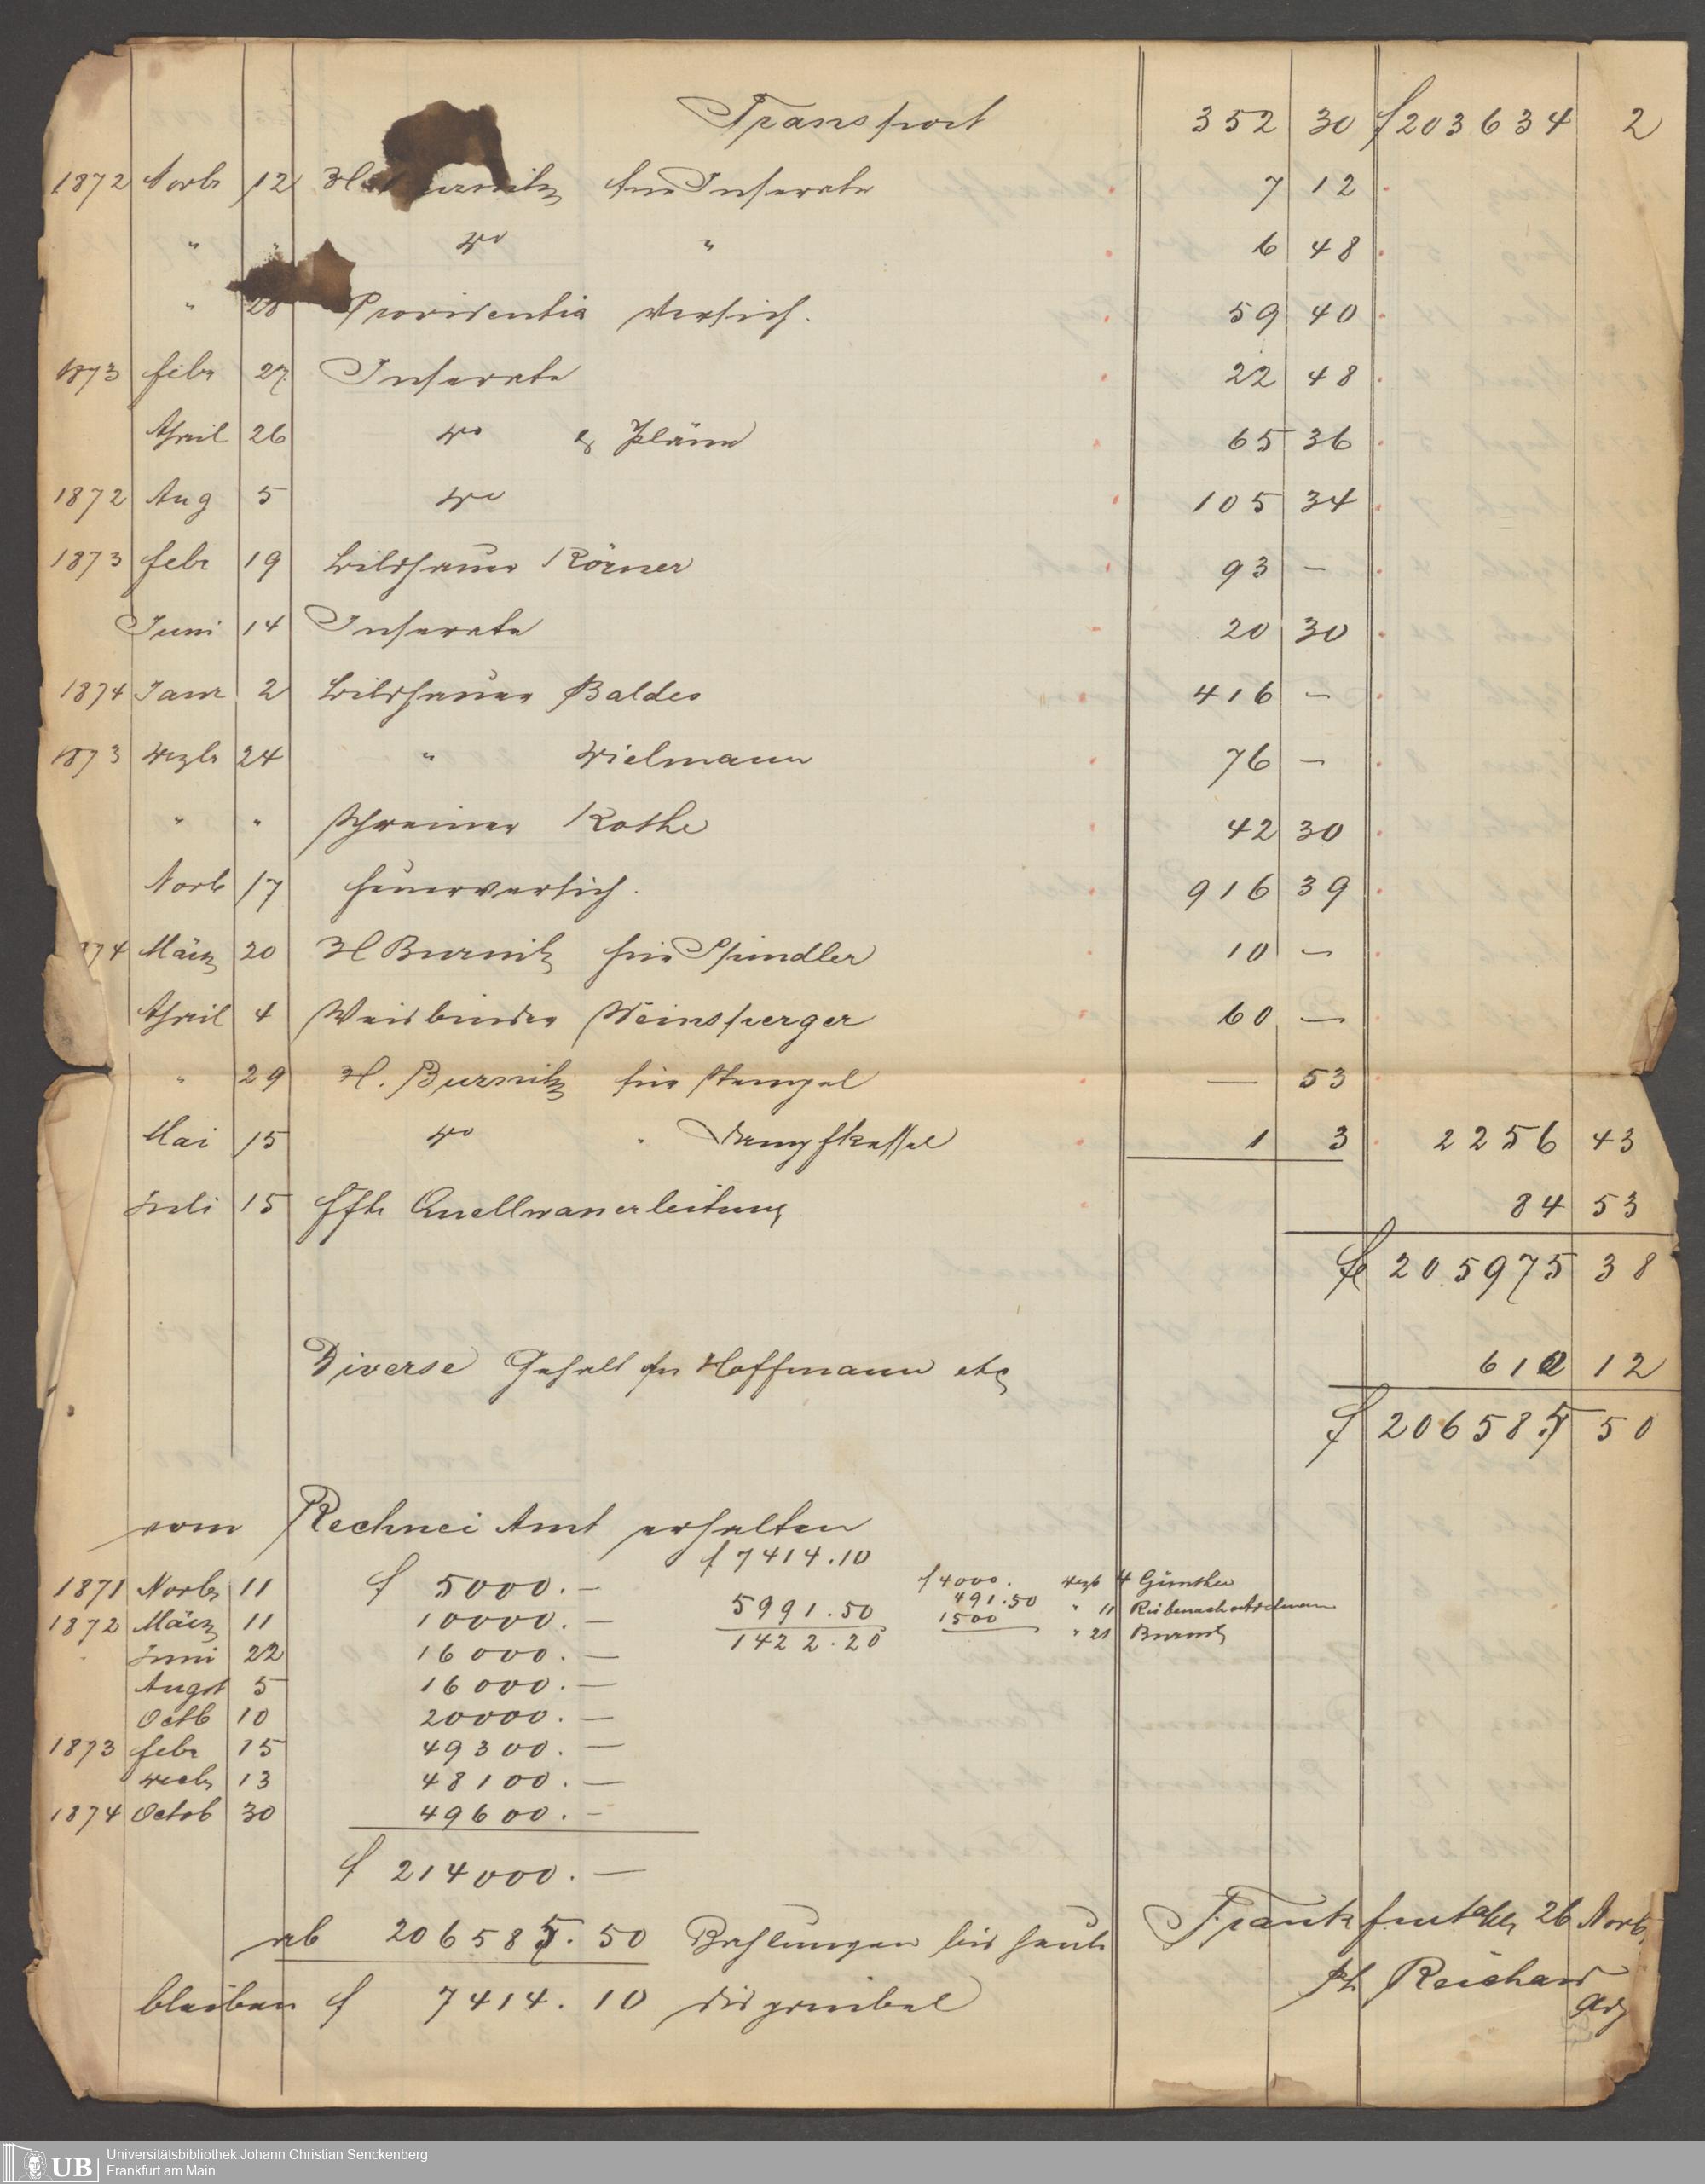 Transport 352 30 f 203634 2
1872 Novbr 12 H Burnitz für Inserate 7 12
" " do " 6 48
" 28 Providentia Versich. 59 40
1873 Febr 27 Inserate 22 48
April 26 do & Pläne 65 36
1872 Aug 5 do 105 34
1873 Febr 19 Bildhauer Körner 93 —
Juni 14 Inserate 20 30
1874 Janr 2 Bildhauer Baldes 416 —
1873 Dezbr 24 " Dielmann 76 —
" " Schreiner Kothe 42 30
Novb 17 Feuerversich. 916 39
1874 März 20 H Burnitz für Spindler 10 —
April 4 Weisbinder Weinsperger 60 —
" 29 H. Burnitz für Stempel — 53
Mai 15 do " Dampfkessel 1 3 2256 43
Juli 15 Quellwasserleitung 84 53
f 205975 38
Diverse Gehalt an Hoffmann etc 610 12
f 206585 50
vom Rechnei Amt erhalten
f 7414.10
1871 Novbr 11 f 5000. — f 4000. Dezb 4 Günther
1872 März 11 10000. — 5991.50 491.50 " 11
Juni 22 16000. — 1422.20 1500 " 21 Burnitz
Augst 5 16000. —
Octb 10 20000. —
1873 Febr 15 49300. —
Decbr 13 48100. —
1874 Octob 30 49600. —
f 214000. —
ab 206585. 50 Zahlungen bis heute Frankfurt 26 Novb.
bleiben f 7414. 10 disponibel Reichard
Universitätsbibliothek Johann Christian Senckenberg
UB Frankfurt am Main